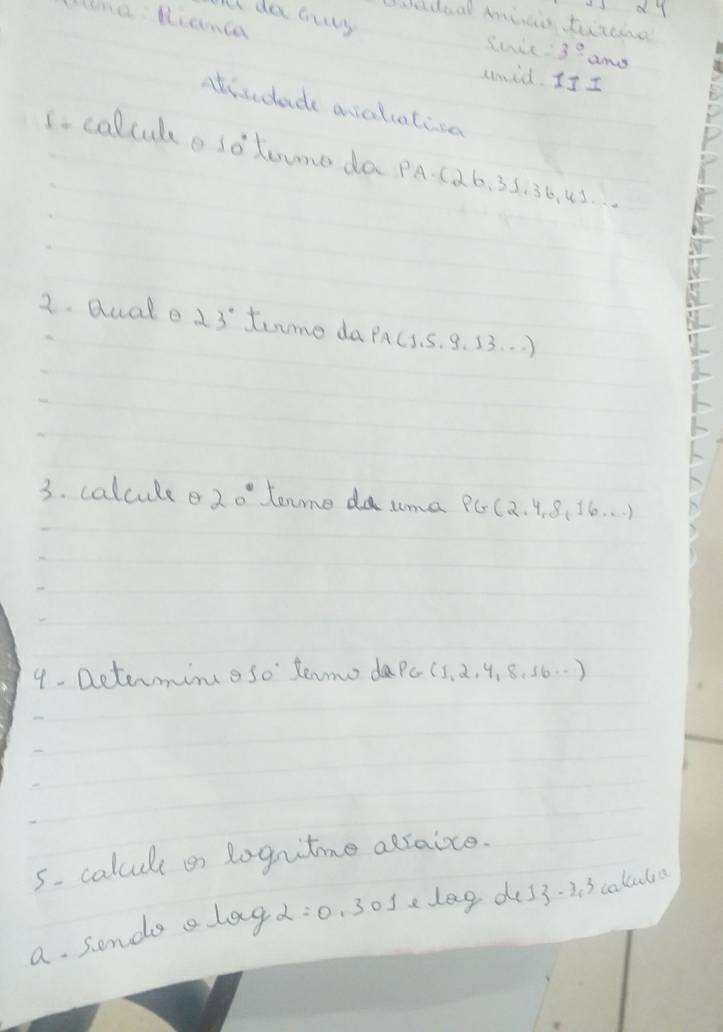 Bianca da Cruz
Teixeira
Serie: 3º ano
unid. III
atividade avaliativa
1- calcule o 10º termo da PA.(26,31,36,41...
2- Qual o 23º termo da PA(1.5.9.13...)
3. calcule o 20º termo da uma PG(2.4,8,16...)
4- Determine o 10º termo da PG(1,2,4,8,16...)
5- calcule os logritmo abaixo.
a. sendo o log2=0,301 e log de 13